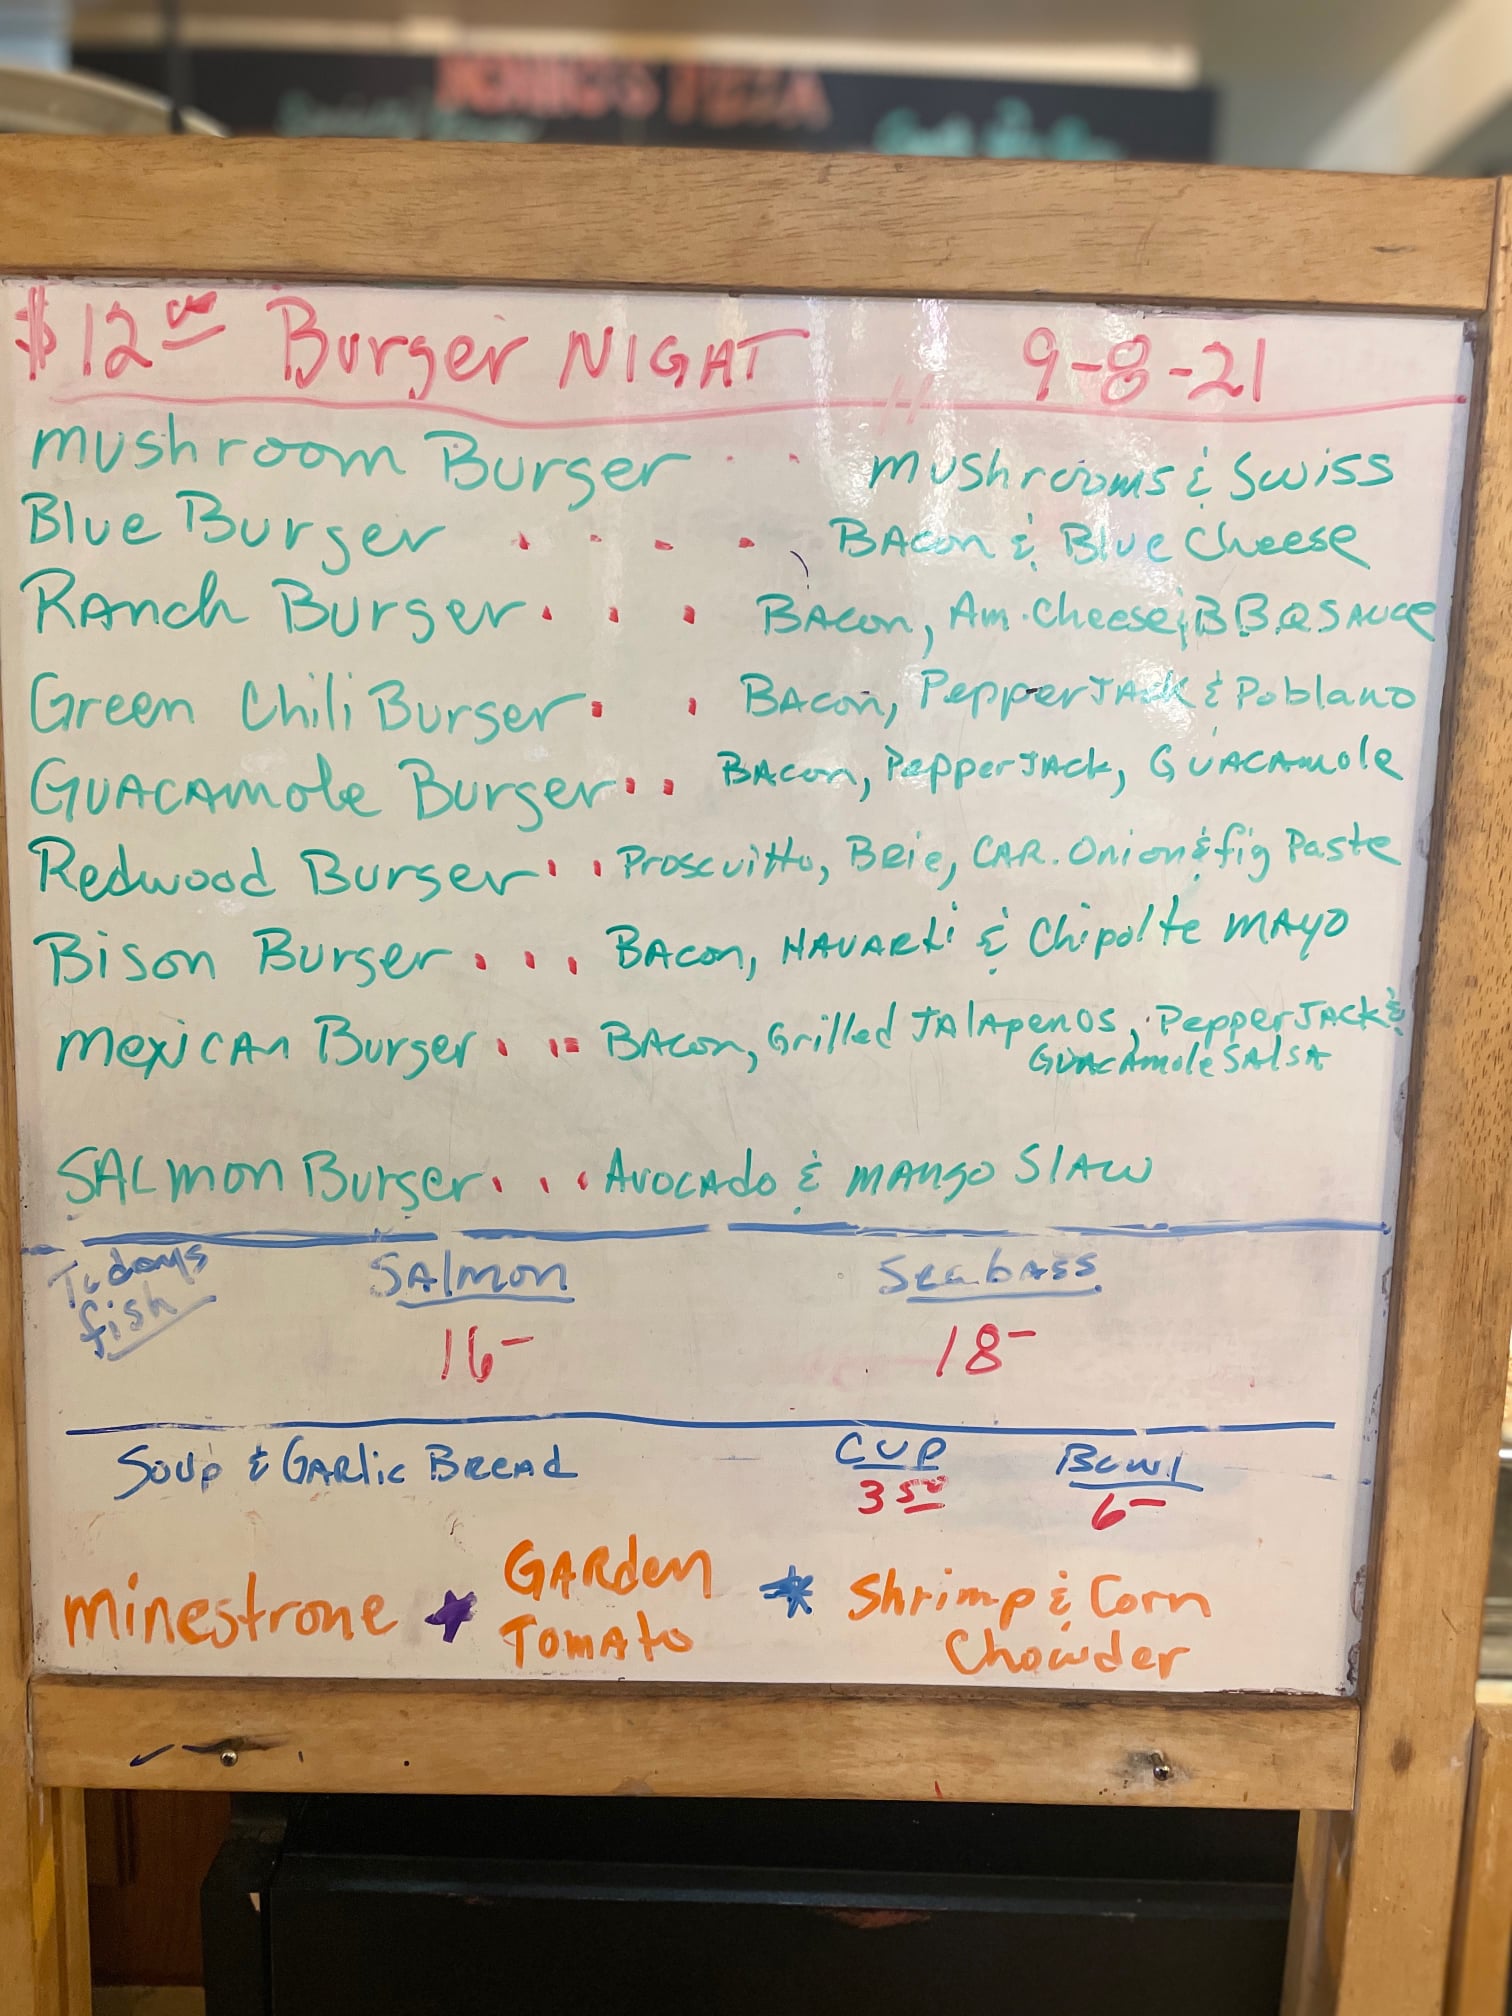 PIZZA
$12.00 Burger NIGHT 9-8-21
Mushroom Burger . . Mushrooms & Swiss
Blue Burger . . . . Bacon & Blue Cheese
Ranch Burger . . . Bacon, Am. Cheese, BBQ Sauce
Green Chili Burger . . Bacon, PepperJack & Poblano
Guacamole Burger . . Bacon, PepperJack, Guacamole
Redwood Burger . . Proscuitto, Brie, Car. Onion & fig Paste
Bison Burger . . . Bacon, Havarti & Chipolte Mayo
Mexican Burger . . . Bacon, Grilled Jalapenos, PepperJack &
Guacamole Salsa
Salmon Burger . . . Avocado & Mango Slaw
Todays Salmon Seabass
fish
16- 18-
Soup & Garlic Bread Cup Bowl
3 50 6-
Garden
Minestrone * Tomato * Shrimp & Corn
Chowder